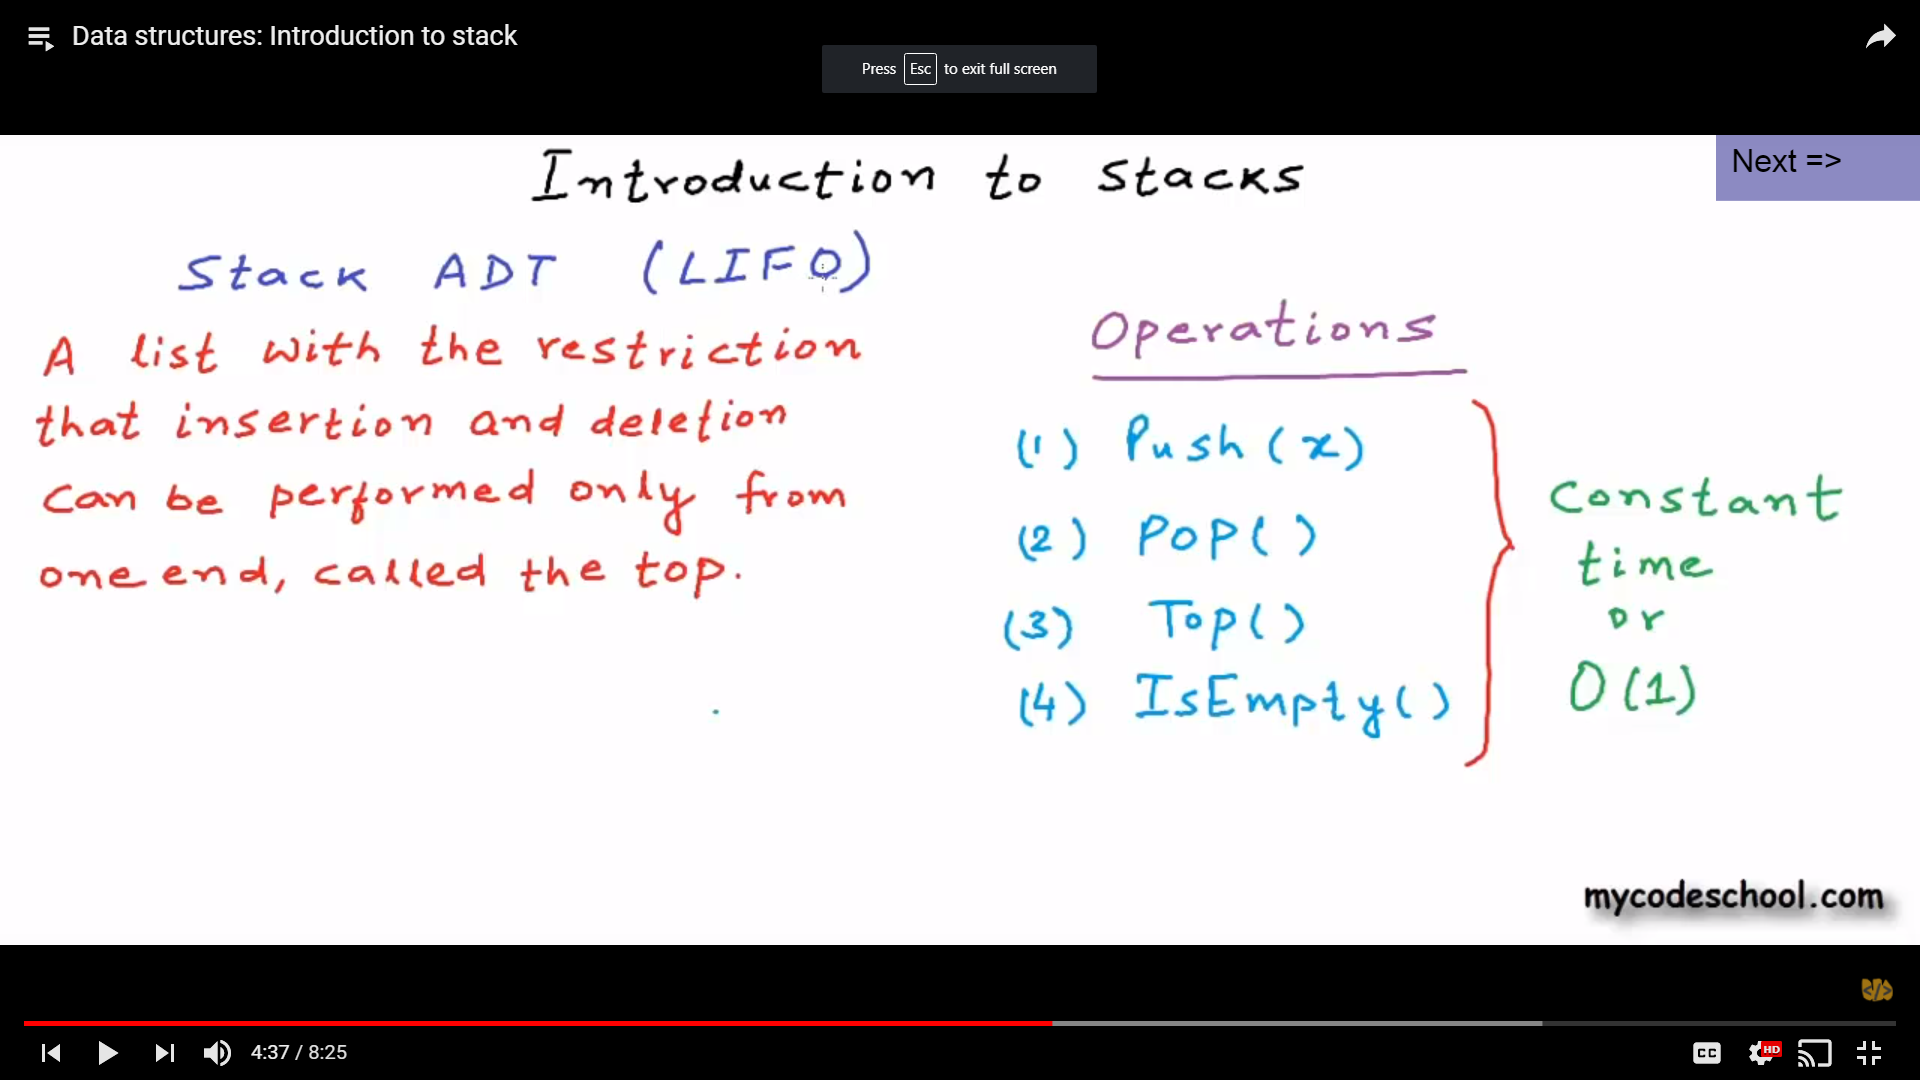 Data structures: Introduction to stack
Press Esc to exit full screen
Introduction to stacks
Next =>
Stack ADT (LIFO)
A list with the restriction
that insertion and deletion
can be performed only from
one end, called the top.
Operations
(1) Push(x)
(2) Pop()
(3) Top()
(4) IsEmpty()
Constant
time
or
O(1)
mycodeschool.com
</>
4:37 / 8:25
CC
HD